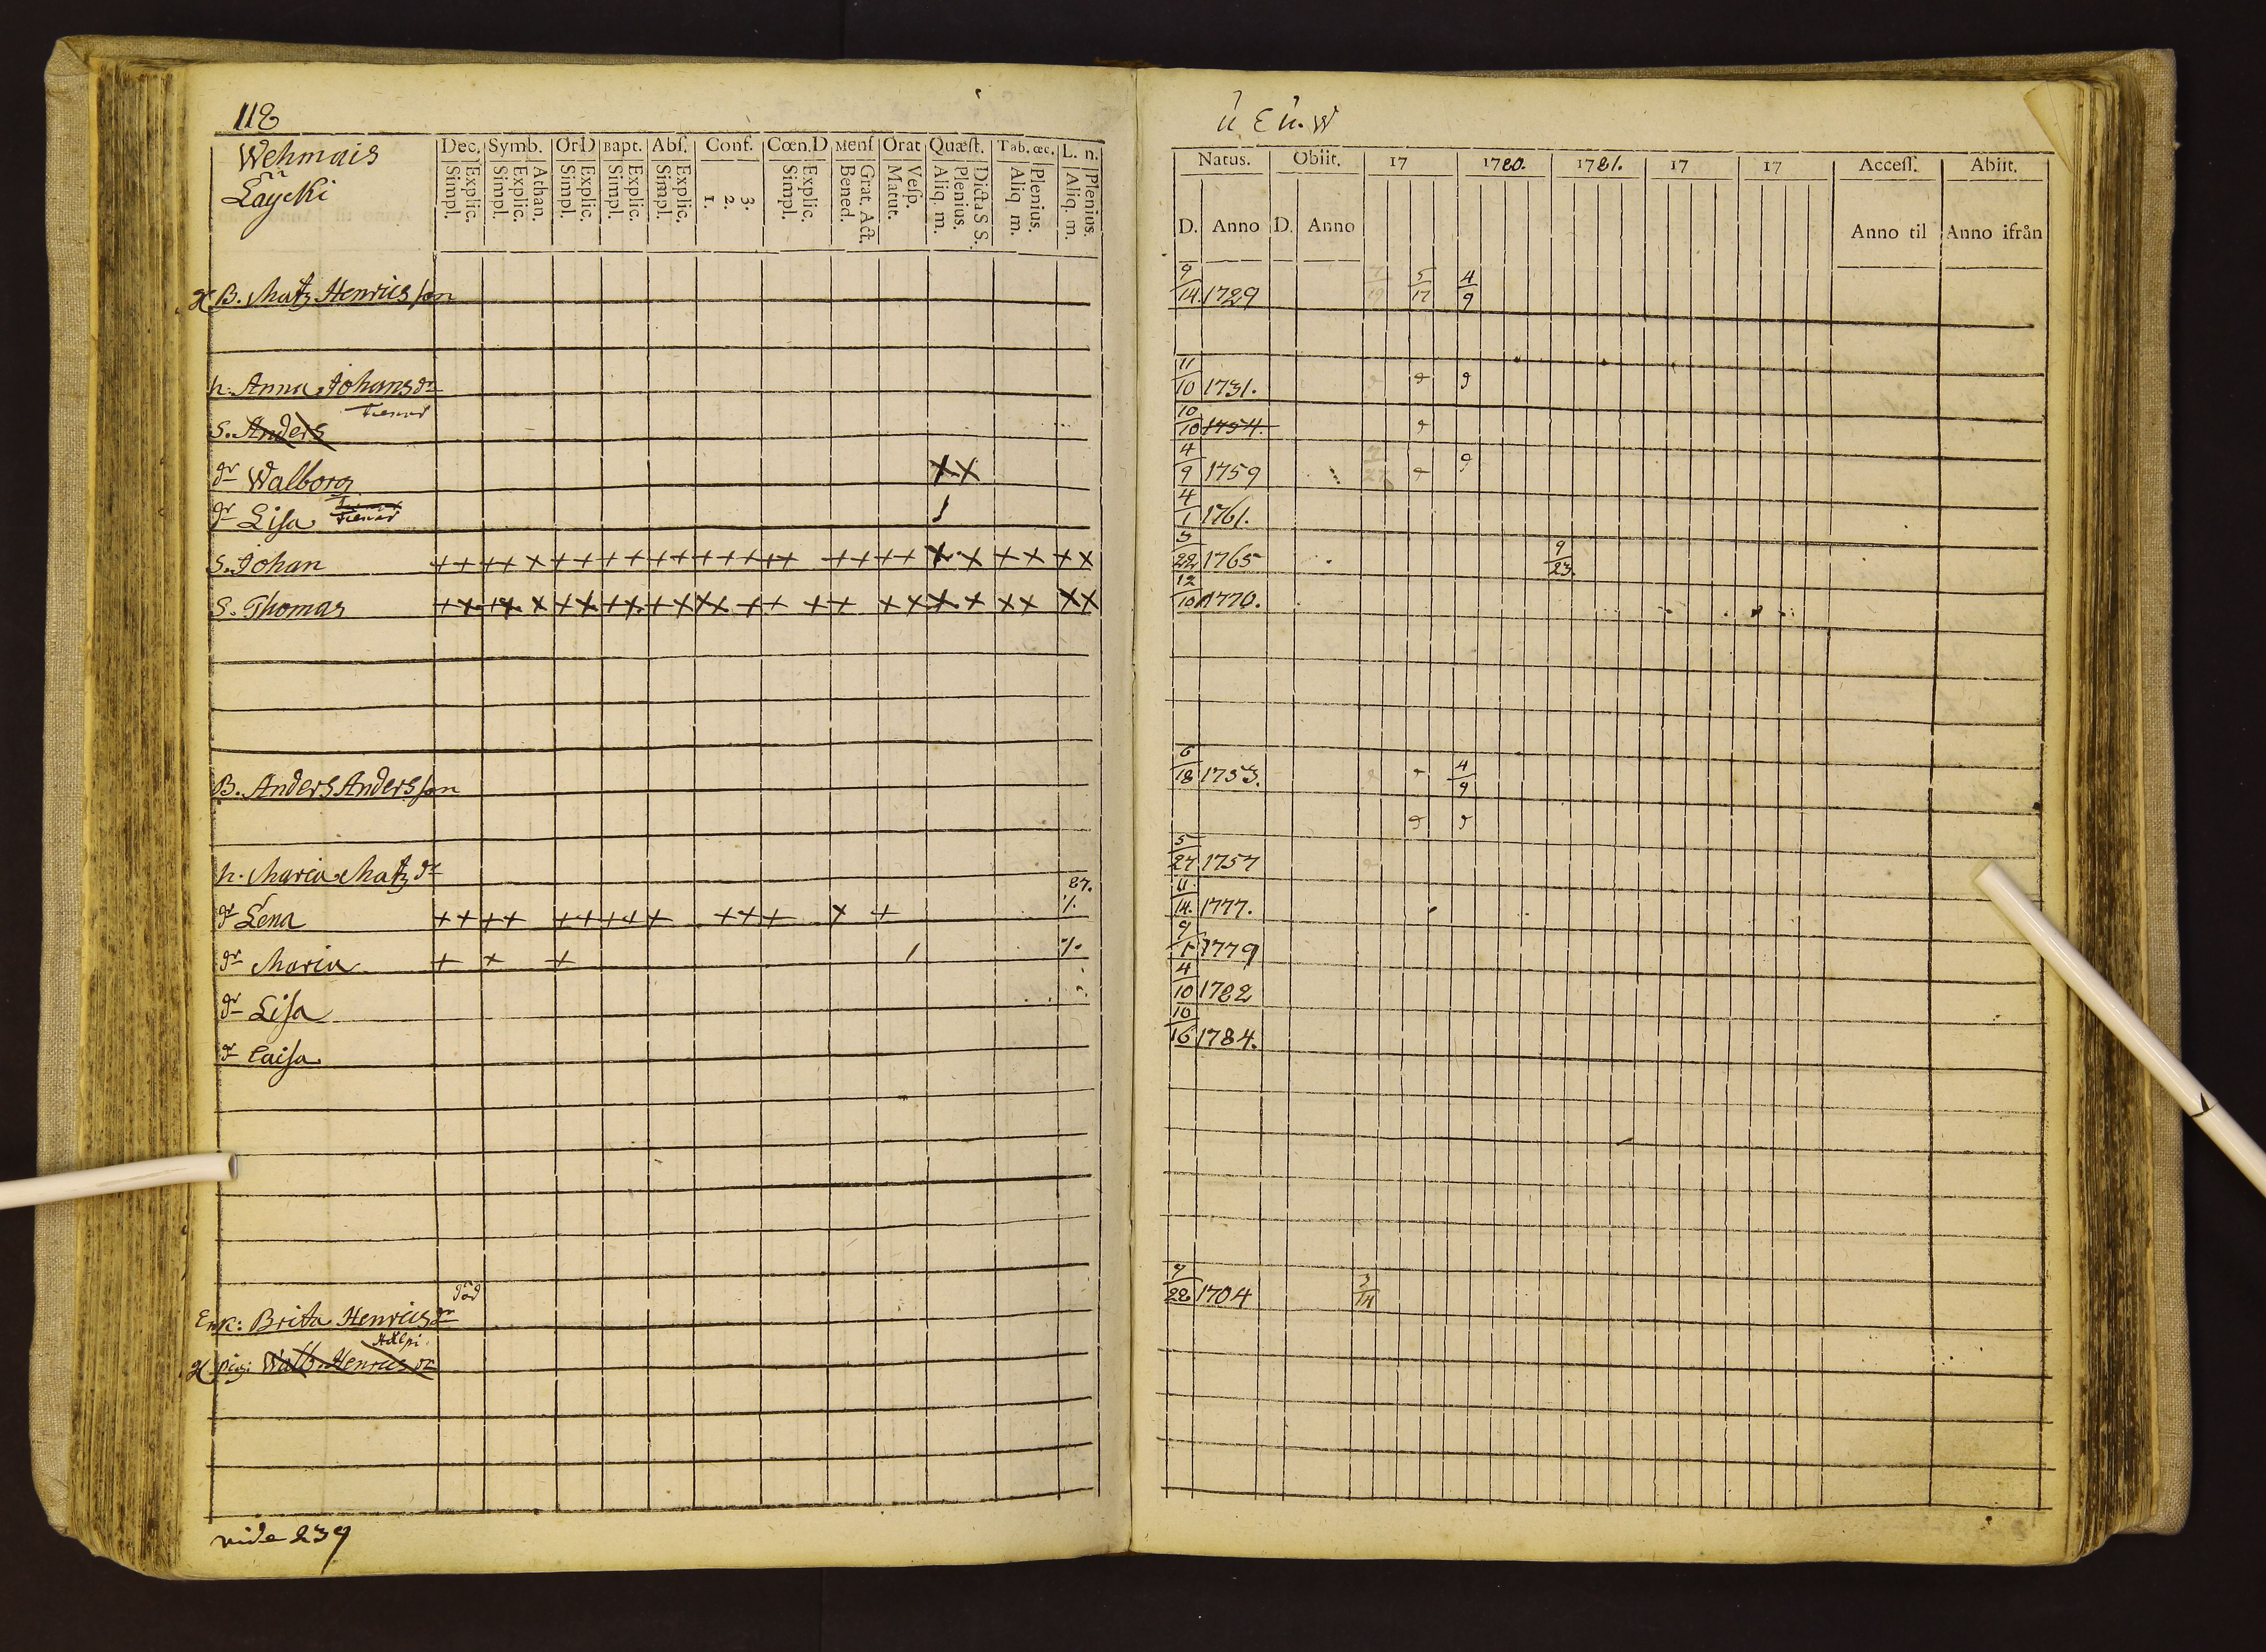 118
Wehmais
Laycki
Dec. Symb. Or D Bapt. Abs. Conf. Cœn. D Mens Orat Quæst. Tab. œc. L. n.
Simpl. Explic. Simpl. Explic. Athan. Simpl. Explic. Simpl. Explic. Simpl. Explic. 1. 2. 3. Simpl. Explic. Bened. Grat. Act. Matut. Vesp. Aliq. m. Plenius. Dicta S S. Aliq m. Plenius. Aliq. m. Plenius.
B. Matz Henricsson
h. Anna Johansdr
S. Anders
dr Walborg X X
dr Lisa
S. Johan + + + + X + + + + + + + + + + + + + + + X X + X + X
S. Thomas
B. Anders Andersson
h. Maria Matzdr
87.
dr Lena + + + + + + + + + + + + X +
dr Maria + + +
dr Lisa
dr Caisa
död
Enk: Brita Henricsdr
pig: Walb. Henricsdr
vide 239
Natus. Obiit. 17 1780. 1781. 17 17 Access. Abiit.
D. Anno D. Anno Anno til Anno ifrån
9/14. 1729 5/17 4/9
11/10 1731.
10/10 1754.
4/9 1759
4/1 1761.
5/22 1765 9/23.
12/10 1770.
6/18 1753. 4/9
5/27 1757
11/14. 1777.
9/1 1779
4/10 1782
10/16 1784.
7/22 1704 3/14